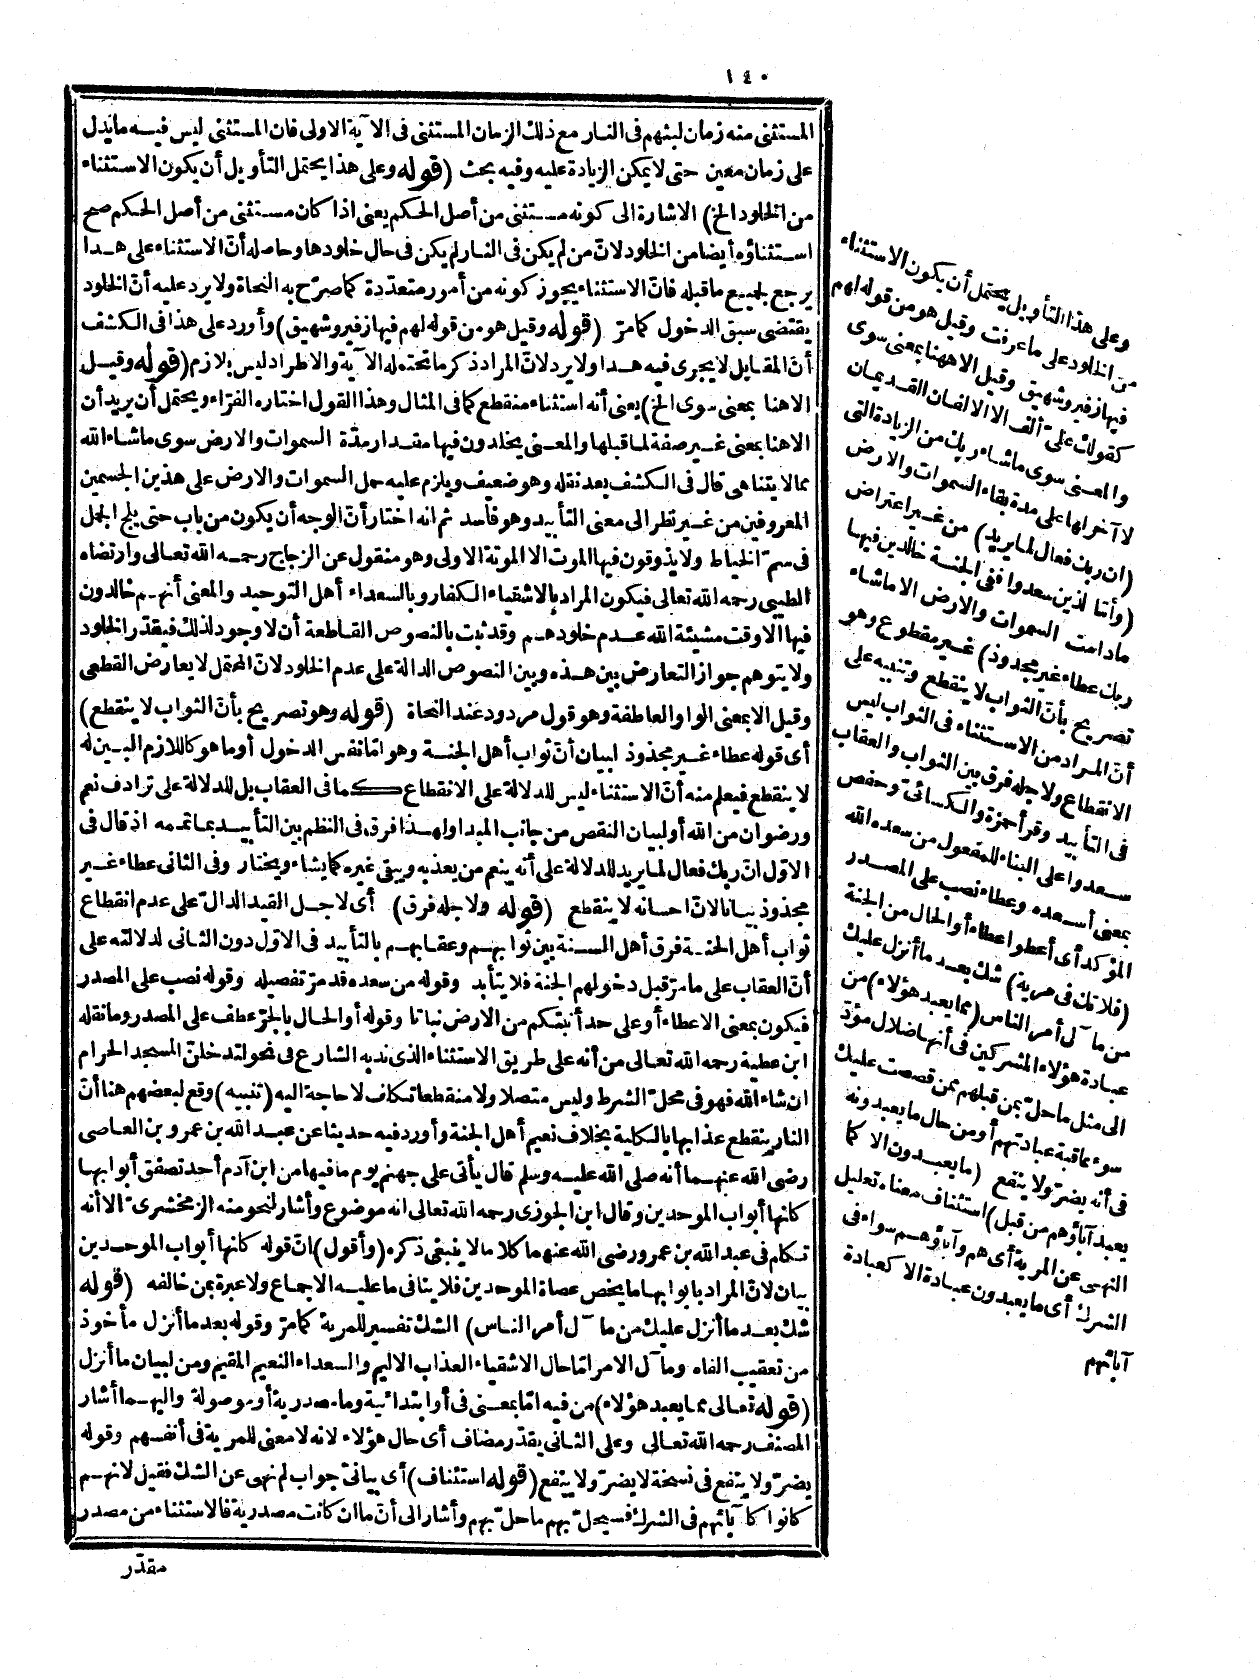 ١٤٠
المستثنى منه زمان لبثهم فى النار مع ذلك الزمان المستثنى فى الآية الاولى فان المستثنى ليس فيه ما يدل
على زمان معين حتى لا يمكن الزيادة عليه وفيه بحث (قوله وعلى هذا يحتمل التأويل أن يكون الاستثناء
من الخلود الخ) الاشارة الى كونه مستثنى من أصل الحكم يعنى اذا كان مستثنى من أصل الحكم صح
استثناؤه أيضا من الخلود لانّ من لم يكن فى النار لم يكن فى حال خلودها وحاصله أنّ الاستثناء على هذا
يرجع لجميع ما قبله فانّ الاستثناء يجوز كونه من أمور متعدّدة كما صرّح به النحاة ولا يرد عليه أنّ الخلود
يقتضى سبق الدخول كما مرّ (قوله وقيل هو من قوله لهم فيها زفير وشهيق) وأورد على هذا فى الكشف
أنّ المقابل لا يجرى فيه هذا ولا يرد لانّ المراد ذكر ما تحتمله الآية والاطراد ليس بلازم (قوله وقيل
الا هنا بمعنى سوى الخ) يعنى أنه استثناء منقطع كما فى المثال وهذا القول اختاره الفرّاء ويحتمل أن يريد أن
الا هنا بمعنى غير صفة لما قبلها والمعنى يخلدون فيها مقدار مدّة السموات والارض سوى ما شاء الله
مما لا يتناهى قال فى الكشف بعد نقله وهو ضعيف ويلزم عليه حمل السموات والارض على هذين الجسمين
المعروفين من غير نظر الى معنى التأبيد وهو فاسد ثم انه اختار أنّ الوجه أن يكون من باب حتى يلج الجمل
فى سمّ الخياط ولا يذوقون فيها الموت الا الموتة الاولى وهو منقول عن الزجاج رحمه الله تعالى وارتضاه
الطيبى رحمه الله تعالى فيكون المراد بالاشقياء الكفار وبالسعداء أهل التوحيد والمعنى أنهم خالدون
فيها الا وقت مشيئة الله عدم خلودهم وقد ثبت بالنصوص القاطعة أن لا وجود لذلك فيقدّر الخلود
ولا يتوهم جواز التعارض بين هذه وبين النصوص الدالة على عدم الخلود لانّ المحتمل لا يعارض القطعى
وقيل الا بمعنى الواو العاطفة وهو قول مردود عند النحاة (قوله وهو تصريح بأنّ الثواب لا ينقطع)
أى قوله عطاء غير مجذوذ لبيان أنّ ثواب أهل الجنة وهو امّا نفس الدخول أو ما هو كاللازم البين له
لا ينقطع فيعلم منه أنّ الاستثناء ليس للدلالة على الانقطاع كما فى العقاب بل للدلالة على ترادف نعم
ورضوان من الله أو لبيان النقص من جانب المبدا ولهذا فرق فى النظم بين التأبيد بما تممه اذ قال فى
الاوّل انّ ربك فعال لما يريد للدلالة على أنه ينعم من يعذبه ويبقى غيره كما يشاء ويختار وفى الثانى عطاء غير
مجذوذ بيانا لانّ احسانه لا ينقطع (قوله ولاجله فرق) أى لاجل القيد الدالّ على عدم انقطاع
ثواب أهل الجنة فرق أهل السنة بين ثوابهم وعقابهم بالتأبيد فى الاوّل دون الثانى لدلالته على
أنّ العقاب على ما مرّ قبل دخولهم الجنة فلا يتأبد وقوله من سعده قد مرّ تفصيله وقوله نصب على المصدر
فيكون بمعنى الاعطاء أو على حد أنبتكم من الارض نباتا وقوله أو الحال بالجرّ عطف على المصدر وما نقله
ابن عطية رحمه الله تعالى من أنه على طريق الاستثناء الذى ندبه الشارع فى نحو لتدخلنّ المسجد الحرام
ان شاء الله فهو فى محلّ الشرط وليس متصلا ولا منقطعا تكلف لا حاجة اليه (تنبيه) وقع لبعضهم هنا أنّ
النار ينقطع عذابها بالكلية بخلاف نعيم أهل الجنة وأورد فيه حديثا عن عبد الله بن عمرو بن العاصى
رضى الله عنهما أنه صلى الله عليه وسلم قال يأتى على جهنم يوم ما فيها من ابن آدم أحد تصفق أبوابها
كانها أبواب الموحدين وقال ابن الجوزى رحمه الله تعالى انه موضوع وأشار لنحو منه الزمخشرىّ الا أنه
تكلم فى عبد الله بن عمرو رضى الله عنهما كلاما لا ينبغى ذكره (وأقول) انّ قوله كانها أبواب الموحدين
بيان لانّ المراد بابوابها ما يخص عصاة الموحدين فلا ينافى ما عليه الاجماع ولا عبرة بمن خالفه (قوله
شك بعد ما أنزل عليك من مآل أمر الناس) الشك تفسير للمرية كما مرّ وقوله بعد ما أنزل مأخوذ
من تعقيب الفاء ومآل الامر اتا حال الاشقياء العذاب الاليم والسعداء النعيم المقيم ومن لبيان ما أنزل
(قوله تعالى مما يعبد هؤلاء) من فيه امّا بمعنى فى أو ابتدائية وما مصدرية أو موصولة واليهما أشار
المصنف رحمه الله تعالى وعلى الثانى يقدّر مضاف أى حال هؤلاء لانه لا معنى للمرية فى أنفسهم وقوله
يضرّ ولا ينفع فى نسخة لا يضرّ ولا ينفع (قوله استئناف) أى بيانىّ جواب لم نهى عن الشك فقيل لانهم
كانوا كآبائهم فى الشرك فسيحلّ بهم ما حلّ بهم وأشار الى أنّ ما ان كانت مصدرية فالاستثناء من مصدر
مقدّر
وعلى هذا التأويل يحتمل أن يكون الاستثناء
من الخلود على ما عرفت وقيل هو من قوله لهم
فيها زفير وشهيق وقيل الا ههنا بمعنى سوى
كقولك علىّ ألف الا الالفان القديمان
والمعنى سوى ما شاء ربك من الزيادة التى
لا آخر لها على مدة بقاء السموات والارض
(ان ربك فعال لما يريد) من غير اعتراض
(وأمّا الذين سعدوا ففى الجنة خالدين فيها
ما دامت السموات والارض الا ما شاء
ربك عطاء غير مجذوذ) غير مقطوع وهو
تصريح بأنّ الثواب لا ينقطع وتنبيه على
أنّ المراد من الاستثناء فى الثواب ليس
الانقطاع ولاجله فرق بين الثواب والعقاب
فى التأبيد وقرأ حمزة والكسائىّ وحفص
سعدوا على البناء للمفعول من سعده الله
بمعنى أسعده وعطاء نصب على المصدر
المؤكد أى أعطوا عطاء أو الحال من الجنة
(فلا تك فى مرية) شك بعد ما أنزل عليك
من مآل أمر الناس (مما يعبد هؤلاء) من
عبادة هؤلاء المشركين فى أنها ضلال مؤدّ
الى مثل ما حلّ بمن قبلهم ممن قصصت عليك
سوء عاقبة عبادتهم أو من حال ما يعبدونه
فى أنه يضرّ ولا ينفع (ما يعبدون الا كما
يعبد آباؤهم من قبل) استئناف معناه تعليل
النهى عن المرية أى هم وآباؤهم سواء فى
الشرك أى ما يعبدون عبادة الا كعبادة
آبائهم